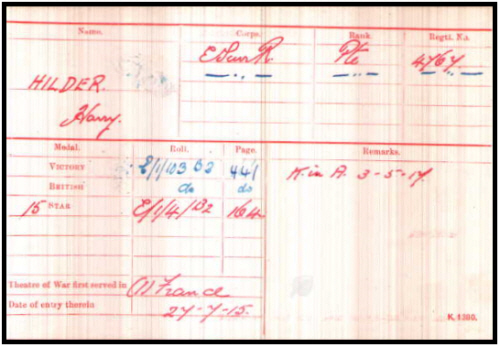 Name. Corps. Rank Regtl. No.
E Surr R Pte 4767
HILDER.
Harry.
Medal. Roll. Page. Remarks.
VICTORY E/1/103 B2 441 K. in A. 3-5-17
BRITISH do do
15 STAR E/1/4/B2 164
Theatre of War first served in (1) France
Date of entry therein 27-7-15.
K. 1380.